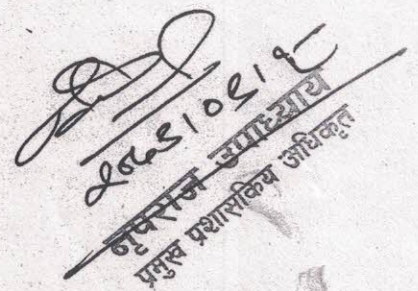 २०७९।०९।१८
नृपराज उपाध्याय
प्रमुख प्रशासकिय अधिकृत